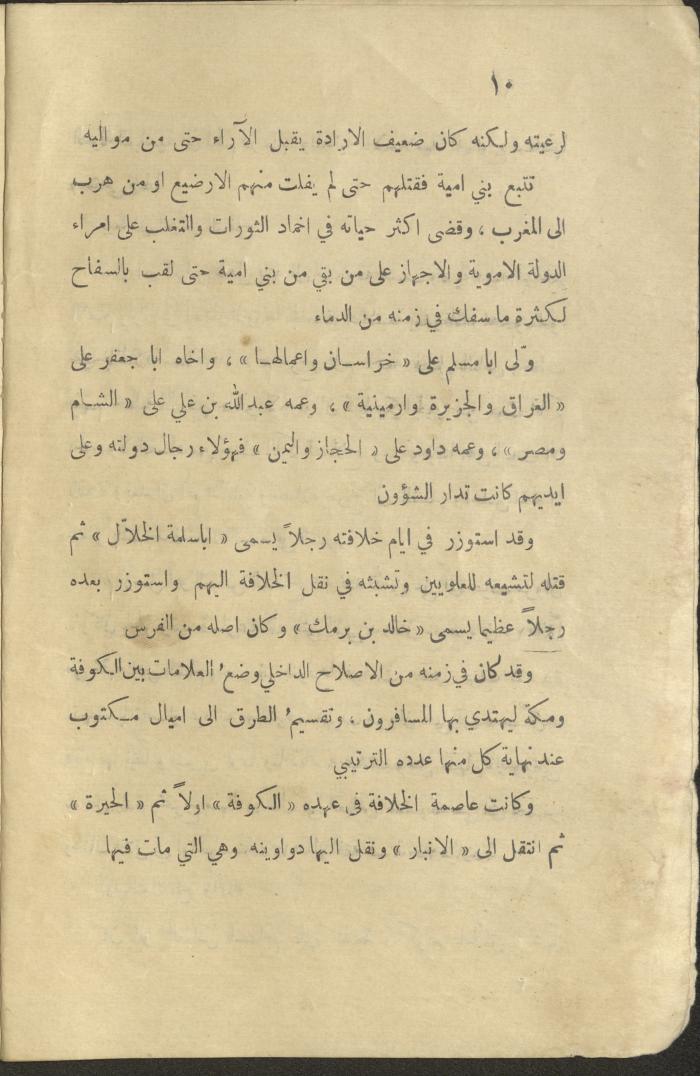 ١٠
لرعيته ولكنه كان ضعيف الارادة يقبل الآراء حتى من مواليه
تتبع بني امية فقتلهم حتى لم يفلت منهم الارضيع او من هرب
الى المغرب ، وقضى اكثر حياته في اخماد الثورات والتغلب على امراء
الدولة الاموية والاجهاز على من بقي من بني امية حتى لقب بالسفاح
لكثرة ما سفك في زمنه من الدماء
ولّى ابا مسلم على « خراسان واعمالها » ، واخاه ابا جعفر على
« العراق والجزيرة وارمينية » ، وعمه عبدالله بن علي على « الشام
ومصر » ، وعمه داود على « الحجاز واليمن » فهؤلاء رجال دولته وعلى
ايديهم كانت تدار الشؤون
وقد استوزر في ايام خلافته رجلاً يسمى « اباسلمة الخلاّل » ثم
قتله لتشيعه للعلويين وتشبثه في نقل الخلافة اليهم واستوزر بعده
رجلاً عظيما يسمى « خالد بن برمك » وكان اصله من الفرس
وقد كان في زمنه من الاصلاح الداخلي وضعُ العلامات بين الكوفة
ومكة ليهتدي بها المسافرون ، وتقسيمُ الطرق الى اميال مكتوب
عند نهاية كل منها عدده الترتيبي
وكانت عاصمة الخلافة في عهده « الكوفة » اولاً ثم « الحيرة »
ثم انتقل الى « الانبار » ونقل اليها دواوينه وهي التي مات فيها